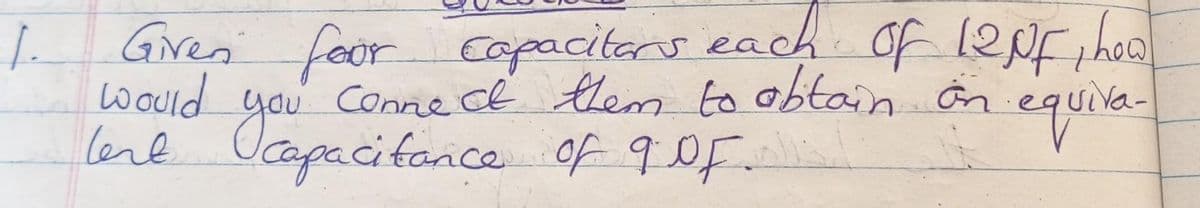 1. Given foor capacitors each of 12 pF, how
would you connect them to obtain an equiva-
lent capacitance of 9 pF.